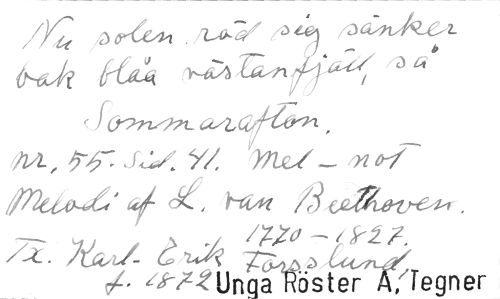 Nu solen röd sig sänker
bak blåa västanfjäll, så
Sommarafton.
nr. 55. Sid. 41. Mel – not
Melodi af L. van Beethoven.
1770 – 1827.
Tx. Karl-Erik Forsslund,
f. 1872 Unga Röster A, Tegner